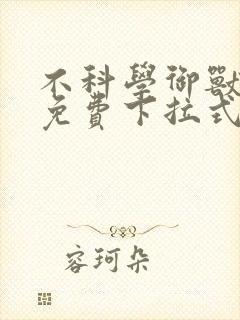 不科學御獸
免費下拉式
容珂朵